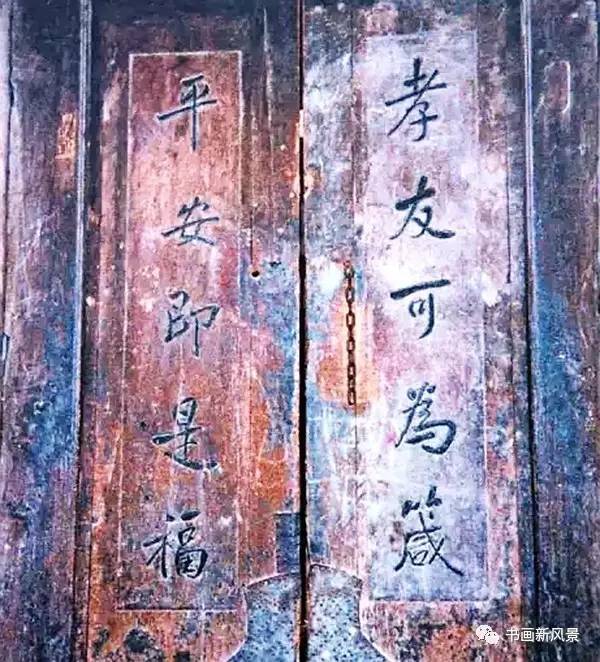 孝友可為箴
平安即是福
书画新风景